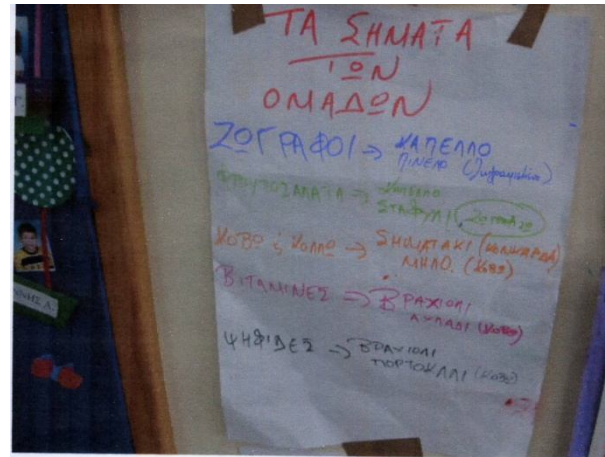 ΤΑ ΣΗΜΑΤΑ
ΤΩΝ
ΟΜΑΔΩΝ
ΖΩΓΡΑΦΟΙ → ΚΑΠΕΛΛΟ
ΠΙΝΕΛΟ
ΦΡΟΥΤΟΣΑΛΑΤΑ → ΚΑΠΕΛΛΟ
ΣΤΑΦΥΛΙ
ΚΟΒΩ & ΚΟΛΛΩ → ΣΗΜΑΤΑΚΙ (ΚΟΝΚΑΡΔΑ)
ΜΗΛΟ. (ΚΟΒΩ)
ΒΙΤΑΜΙΝΕΣ → ΒΡΑΧΙΟΛΙ
ΑΧΛΑΔΙ (ΚΟΒΩ)
ΨΗΦΙΔΕΣ → ΒΡΑΧΙΟΛΙ
ΠΟΡΤΟΚΑΛΙ (ΚΟΒΩ)